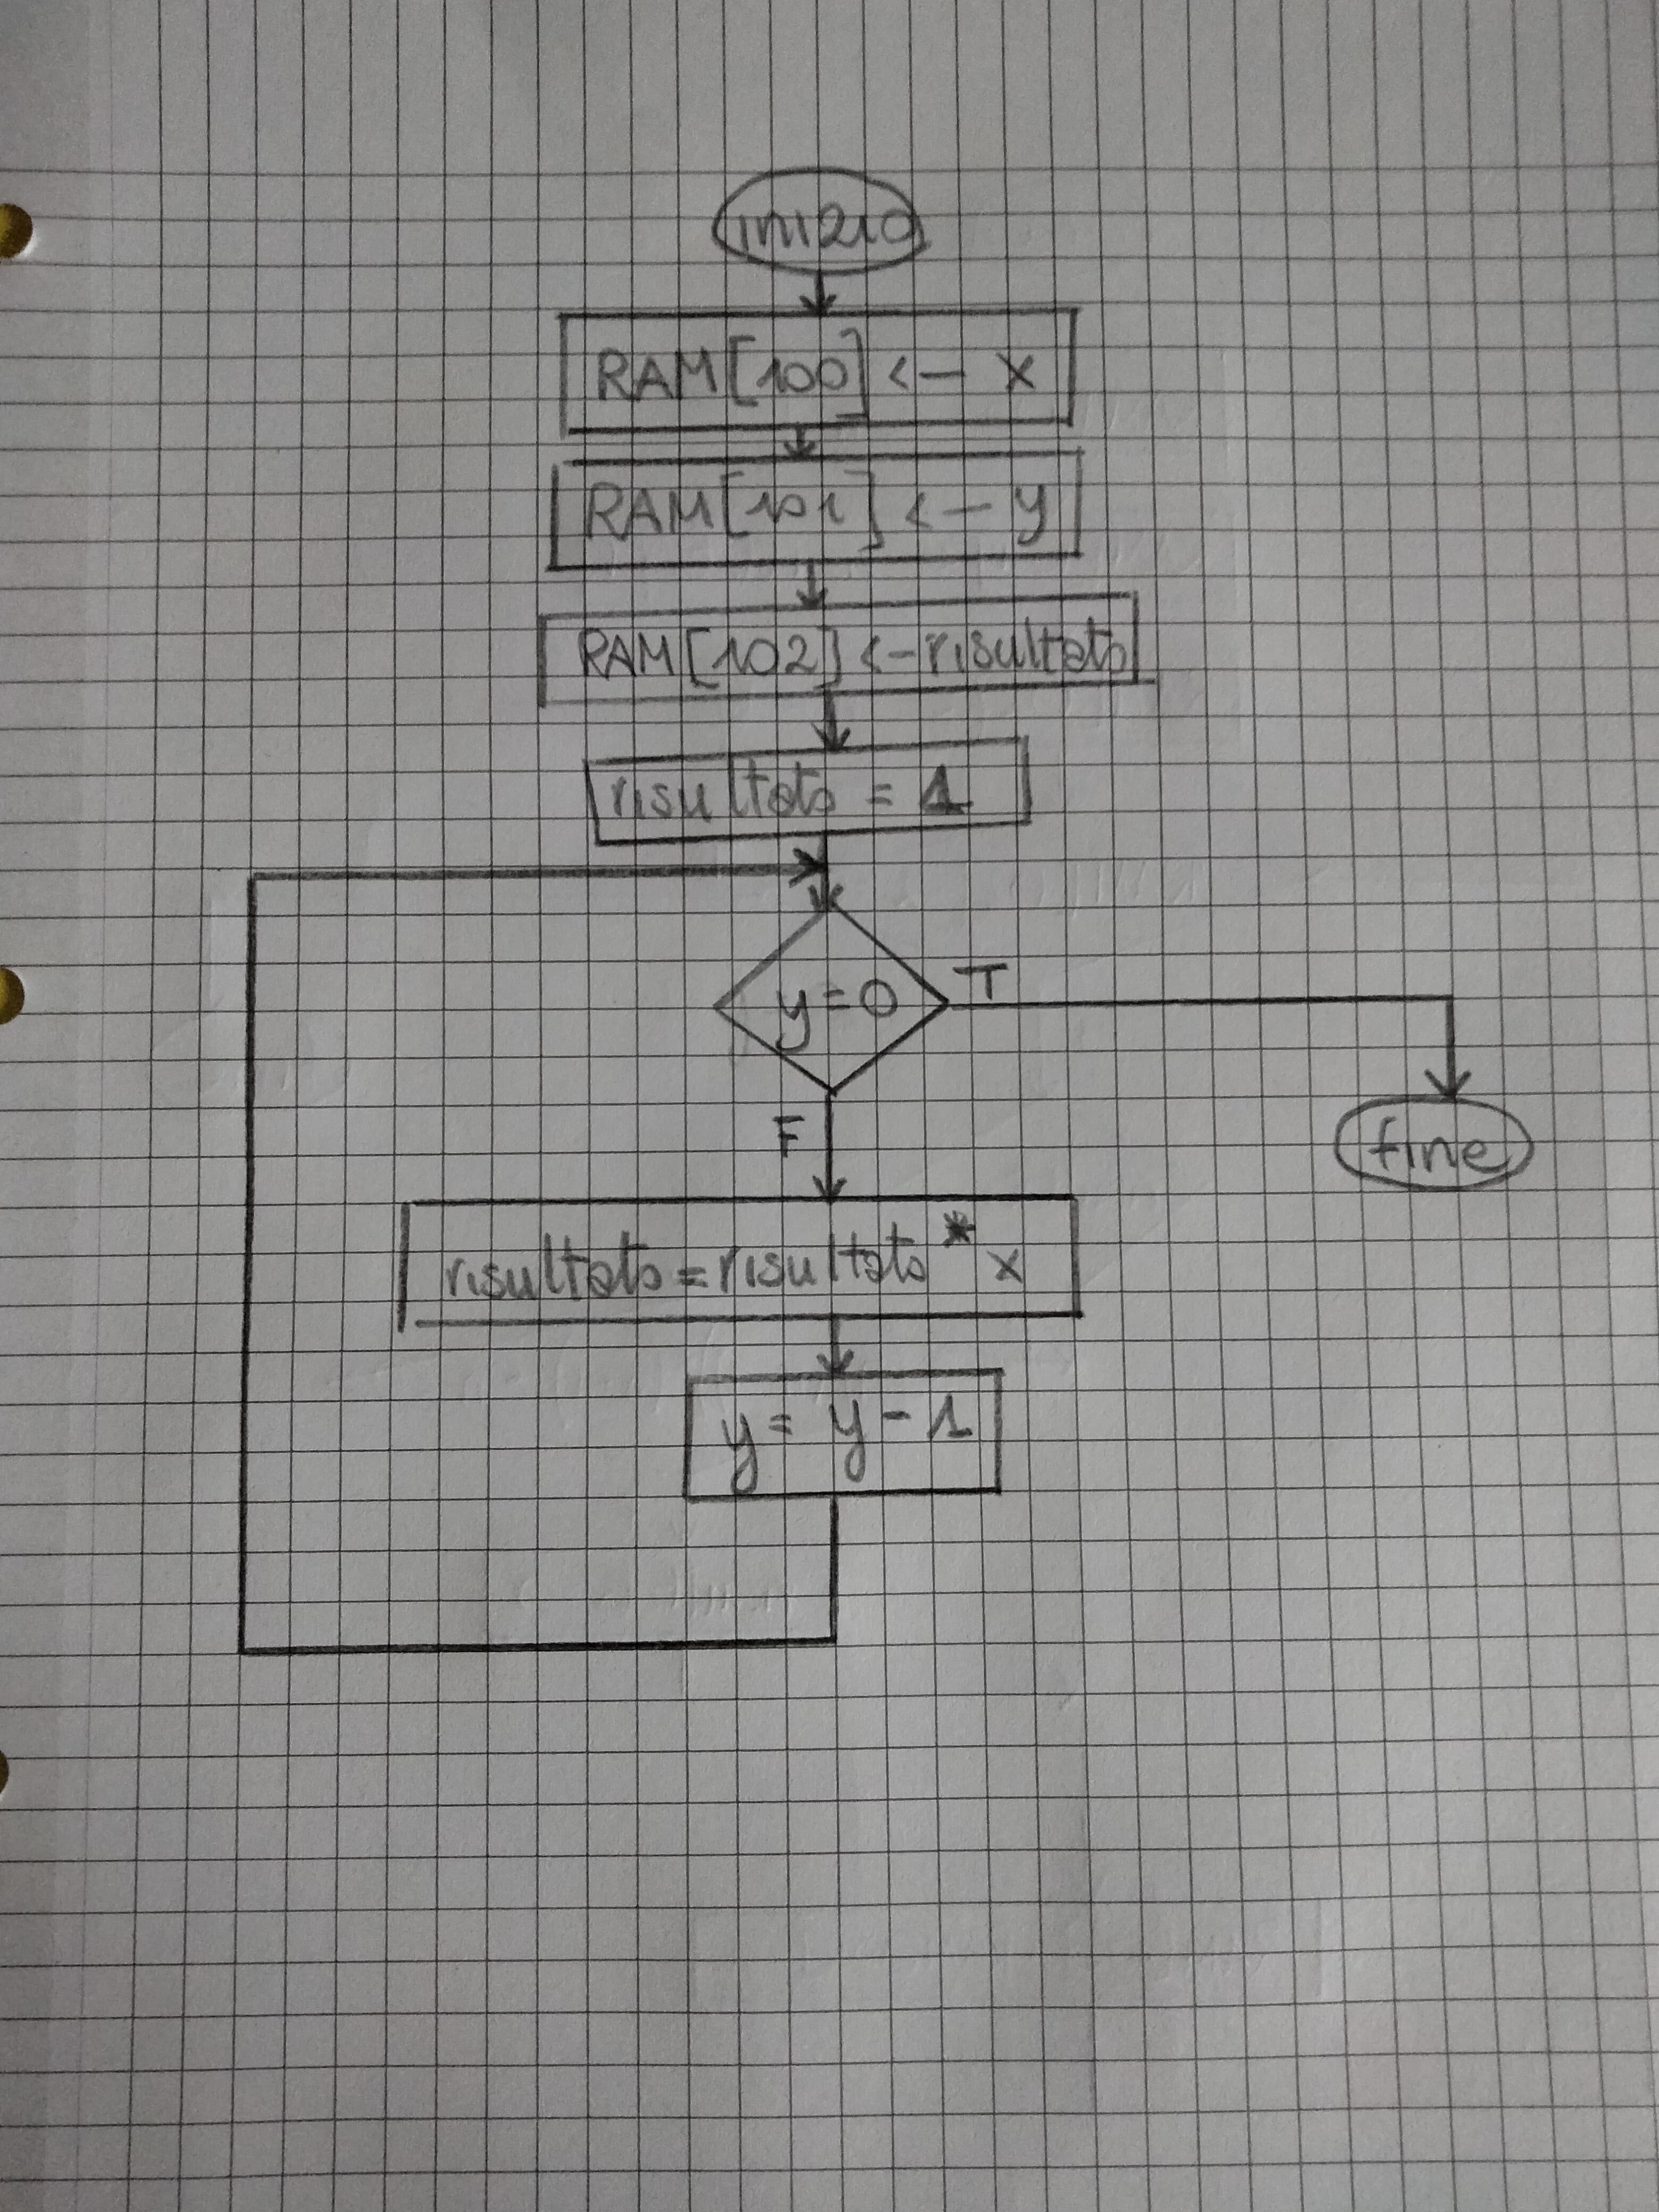 inizio
RAM[100] <- x
RAM[101] <- y
RAM[102] <- risultato
risultato = 1
y=0 T
F
fine
risultato = risultato * x
y = y - 1